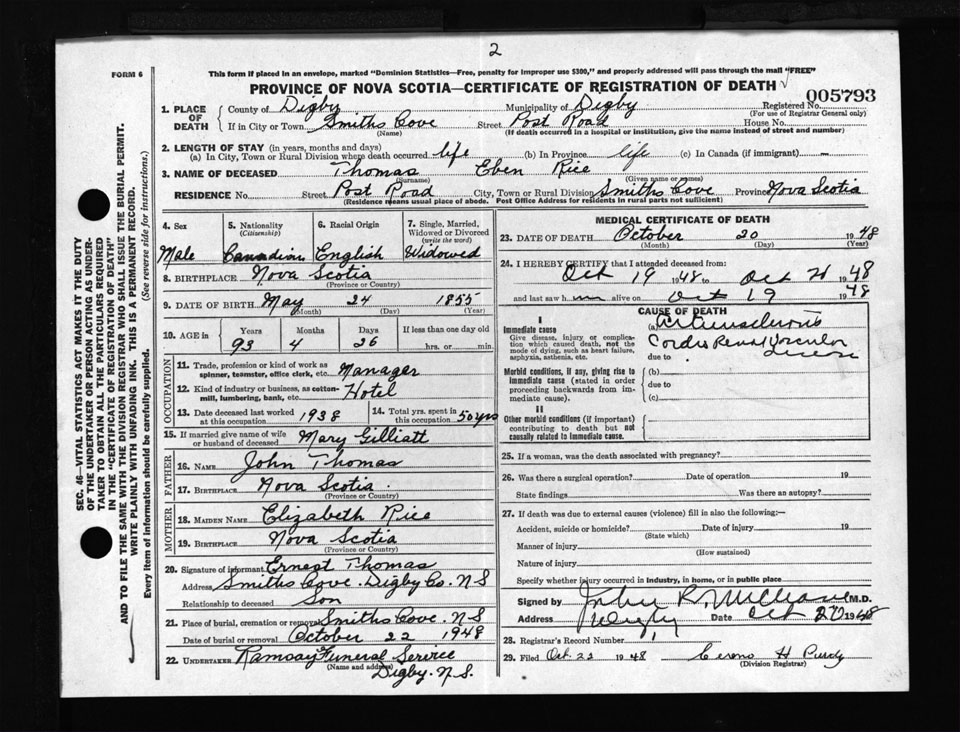 2
FORM 6
This form if placed in an envelope, marked "Dominion Statistics—Free, penalty for improper use $300," and properly addressed will pass through the mail "FREE"
PROVINCE OF NOVA SCOTIA—CERTIFICATE OF REGISTRATION OF DEATH
005793
1. PLACE OF DEATH
County of Digby Municipality of Digby Registered No.
(For use of Registrar General only)
If in City or Town Smiths Cove Street Post Road House No.
(Name) (If death occurred in a hospital or institution, give the name instead of street and number)
2. LENGTH OF STAY (in years, months and days)
(a) In City, Town or Rural Division where death occurred life (b) In Province life (c) In Canada (if immigrant) —
3. NAME OF DECEASED Thomas Eben Rice
(Surname) (Given name or names)
RESIDENCE No. Street Post Road City, Town or Rural Division Smiths Cove Province Nova Scotia
(Residence means usual place of abode. Post Office Address for residents in rural parts not sufficient)
4. Sex 5. Nationality (Citizenship) 6. Racial Origin 7. Single, Married, Widowed or Divorced (write the word)
Male Canadian English Widowed
8. BIRTHPLACE Nova Scotia
(Province or Country)
9. DATE OF BIRTH May 24 1855
(Month) (Day) (Year)
10. AGE in Years Months Days If less than one day old
93 4 26 hrs. or min.
OCCUPATION
11. Trade, profession or kind of work as spinner, teamster, office clerk, etc. Manager
12. Kind of industry or business, as cotton-mill, lumbering, bank, etc. Hotel
13. Date deceased last worked at this occupation 1938 14. Total yrs. spent in this occupation 50 yrs
15. If married give name of wife or husband of deceased Mary Gilliatt
FATHER
16. NAME John Thomas
17. BIRTHPLACE Nova Scotia.
(Province or Country)
MOTHER
18. MAIDEN NAME Elizabeth Rice
19. BIRTHPLACE Nova Scotia
(Province or Country)
20. Signature of informant Ernest Thomas
Address Smiths Cove. Digby Co. N S
Relationship to deceased Son
21. Place of burial, cremation or removal Smiths Cove. N S
Date of burial or removal October 22 1948
22. UNDERTAKER Ramsay Funeral Service
(Name and address) Digby. N.S.
MEDICAL CERTIFICATE OF DEATH
23. DATE OF DEATH October 20 1948
(Month) (Day) (Year)
24. I HEREBY CERTIFY that I attended deceased from:
Oct 19 1948 to Oct 20 1948
and last saw him alive on Oct 19 1948
CAUSE OF DEATH
I
Immediate cause
Give disease, injury or complication which caused death, not the mode of dying, such as heart failure, asphyxia, asthenia, etc.
(a)
Renal Vascular
due to
Morbid conditions, if any, giving rise to immediate cause (stated in order proceeding backwards from immediate cause).
(b)
due to
(c)
II
Other morbid conditions (if important) contributing to death but not causally related to immediate cause.
25. If a woman, was the death associated with pregnancy?
26. Was there a surgical operation? Date of operation 19
State findings Was there an autopsy?
27. If death was due to external causes (violence) fill in also the following:—
Accident, suicide or homicide? Date of injury 19
(State which)
Manner of injury
(How sustained)
Nature of injury
Specify whether injury occurred in industry, in home, or in public place
Signed by John R. M.D.
Address Digby Date Oct 20 1948
28. Registrar's Record Number
29. Filed Oct. 22 1948 H Purdy
(Division Registrar)
SEC. 46—VITAL STATISTICS ACT MAKES IT THE DUTY
OF THE UNDERTAKER OR PERSON ACTING AS UNDER-
TAKER TO OBTAIN ALL THE PARTICULARS REQUIRED
IN THE "CERTIFICATE OF REGISTRATION OF DEATH"
AND TO FILE THE SAME WITH THE DIVISION REGISTRAR WHO SHALL ISSUE THE BURIAL PERMIT.
WRITE PLAINLY WITH UNFADING INK. THIS IS A PERMANENT RECORD.
Every item of information should be carefully supplied. (See reverse side for instructions.)